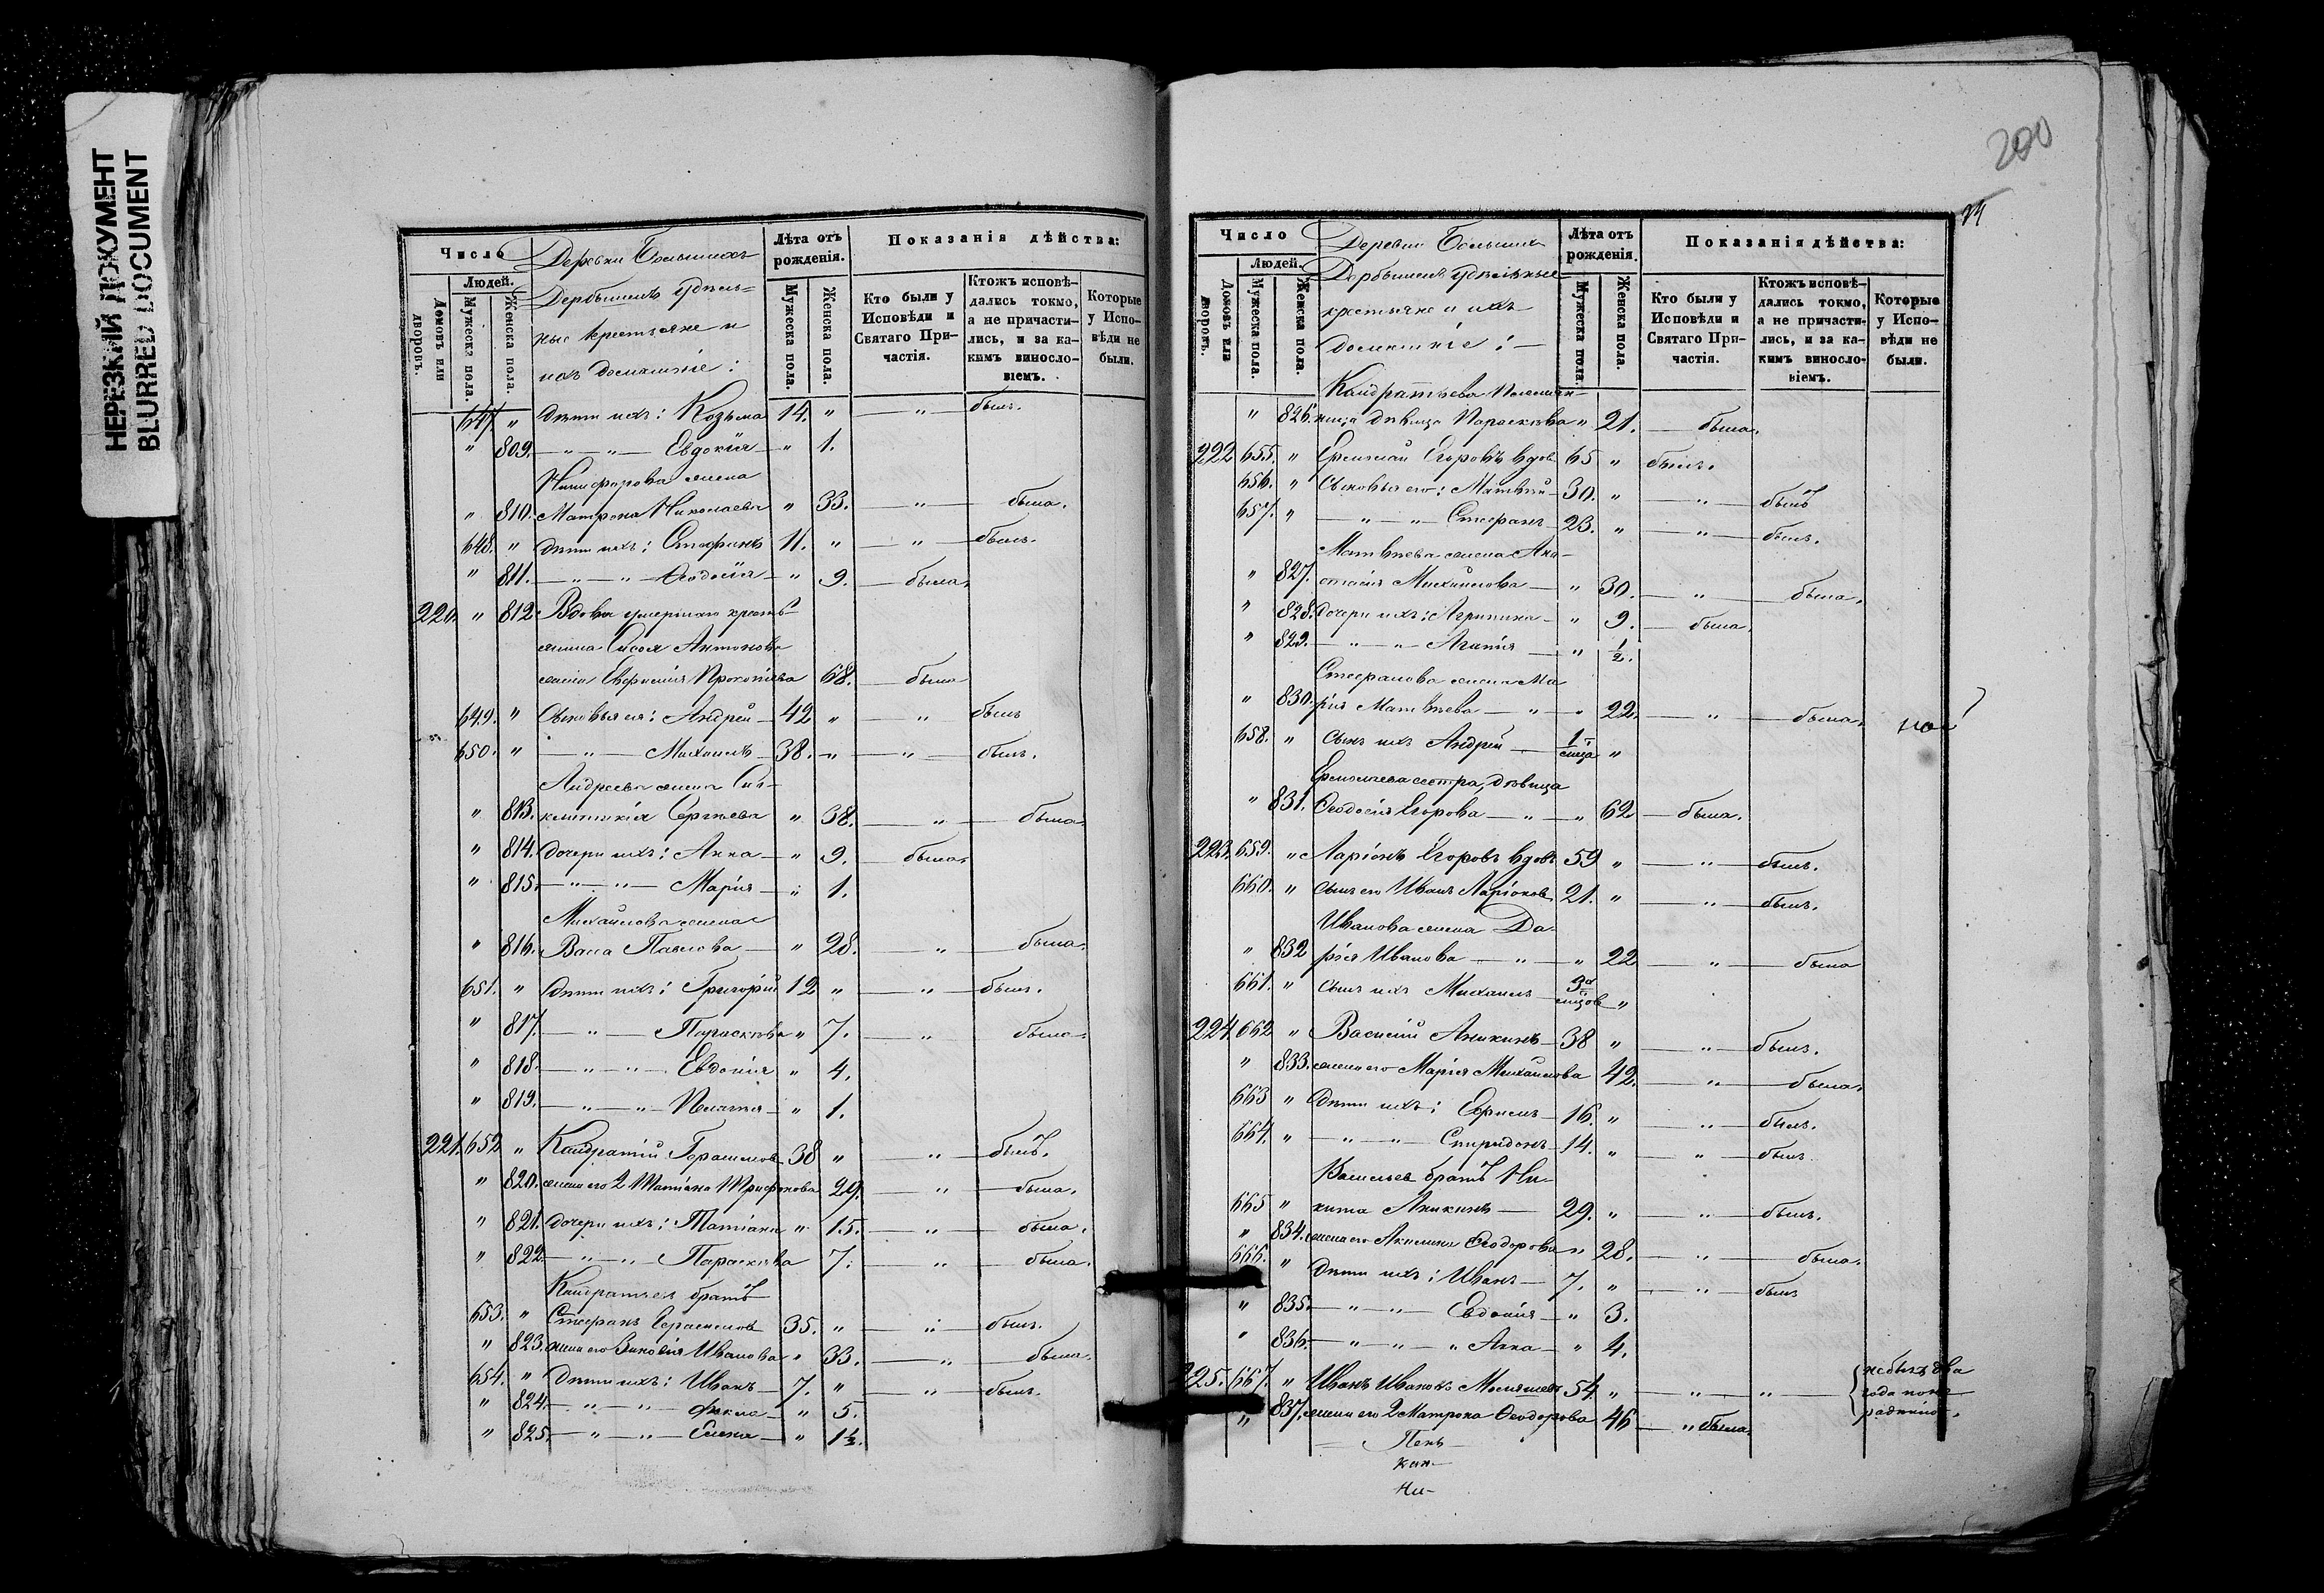 НЕРЕЗКИЙ ДОКУМЕНТ
BLURRED DOCUMENT
Число
Людей.
Домовъ или дворовъ.
Мужеска пола.
Женска пола.
Деревни Большихъ
Дербышекъ удѣль-
ные крестьяне и
ихъ домашніе:
Лѣта отъ рожденія.
Мужеска пола.
Женска пола.
Показанія дѣйства:
Кто были у Исповѣди и Святаго При-частія.
Ктожъ исповѣ-дались токмо, а не причасти-лись, и за ка-кимъ винсло-віемъ.
Которые у Испо-вѣди не были.
647 " дѣти ихъ: Козьма 14. " " былъ.
" 809. " " Евдокія " 1.
Никифорова жена
" 810. Матрона Николаева " 33. " была.
648. " дѣти ихъ: Стефанъ 11. " " былъ.
" 811. " " Ѳеодосія " 9. была.
220. " 812 Вдова умершаго кресть-
янина Сисоя Антонова
жена Евфимія Прокопіева 68. была
649. " Сыновья ея: Андрей 42 " " былъ
650. " " Михаилъ 38. " " былъ.
Андреева жена Син-
" 813. клитикія Сергѣева " 38. " была.
" 814. дочери ихъ: Анна " 9. была.
" 815. " " Марія " 1.
Михайлова жена
" 816. Васса Павлова " 28. " была.
651. " Дѣти ихъ: Григорій 12 " " былъ.
" 817. " Параскева " 7. " была.
" 818. " " Евдокія " 4.
" 819. " " Пелагія " 1.
221. 652 " Кондратій Герасимовъ 38 " " былъ.
" 820. жена его 2 Татіана Трифонова 29. " была.
" 821. дочери ихъ: Татіана " 15. " была.
" 822. " " Параскева 7. " была.
Кондратьевъ братъ
653. " Стефанъ Герасимовъ 35. " " былъ.
" 823. жена его Зиновія Иванова " 33. " была.
654. " Дѣти ихъ: Иванъ 7. " " былъ.
" 824. " " Ѳекла " 5.
" 825. " " Елена " 1½.
200
Число
Людей.
Домовъ или дворовъ.
Мужеска пола.
Женска пола.
Деревни Большихъ
Дербышекъ удѣльные
крестьяне и ихъ
домашніе:
Лѣта отъ рожденія.
Мужеска пола.
Женска пола.
Показанія дѣйства:
Кто были у Исповѣди и Святаго При-частія.
Ктожъ исповѣ-дались токмо, а не причасти-лись, и за ка-кимъ винсло-віемъ.
Которые у Испо-вѣди не были.
Кондратьева племян-
" 826. ница дѣвица Параскева " 21. была.
222 655. " Ермолай Егоровъ вдов. 65 " былъ.
656. " Сыновья его: Матвѣй 30. " " былъ
657. " " " Стефанъ 23. " " былъ.
Матвѣева жена Ана-
" 827. стасія Михайлова " 30. " была.
" 828. дочери ихъ: Агрипина " 9. была.
" 829. " " Агапія " ½.
Стефанова жена Ма
" 830. рія Матвѣева " " 22. " была.
658. " сынъ ихъ Андрей 1 мѣсца "
Ермолаева сестра, дѣвица
" 831. Ѳеодосія Егорова " " 62 была.
223. 659. " Ларіонъ Егоровъ вдовъ 59 " " былъ.
660. " сынъ его Иванъ Ларіоновъ 21. " " былъ.
Иванова жена Да-
" 832 рія Иванова " " 22 " была
661. " сынъ ихъ Михаилъ 3 мѣсцов "
224 662 " Василій Аникинъ 38 " " былъ.
" 833. жена его Марія Михайлова 42. " была.
663 " Дѣти ихъ: Ефимъ 16. " " былъ.
664. " " " Спиридонъ 14. " " былъ.
Васильевъ братъ Ни-
665 " кита Аникинъ 29. " " былъ.
" 834. жена его Акилина Ѳеодорова " 28. " была.
666. " Дѣти ихъ: Иванъ 7. " " былъ
" 835. " " Евдокія " 3.
" 836. " " " Анна " 4.
225. 667. " Иванъ Ивановъ 54. " " " не былъ два
года по не
радѣнію.
" 837. жена его 2 Матрона Ѳеодорова 46 " была.